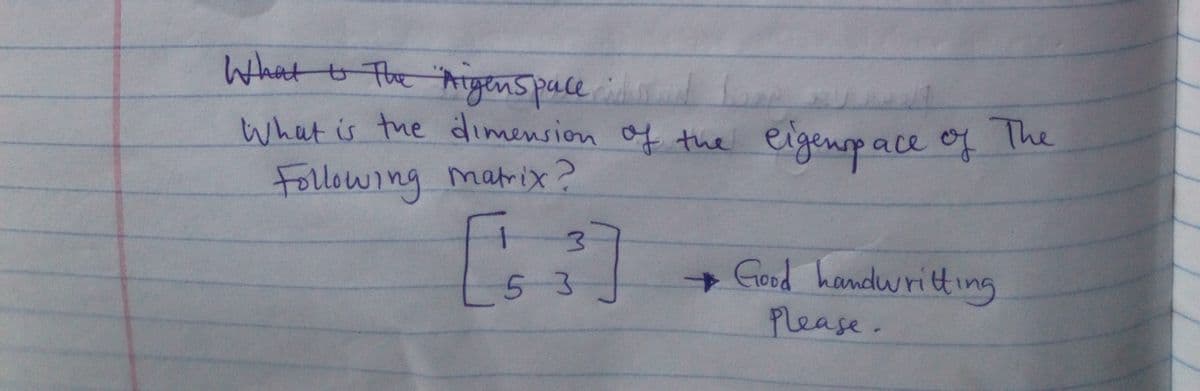 What is The "Aigenspace
What is the dimension of the eigenspace of The
Following matrix?
1 3
5 3
→ Good handwritting
Please.